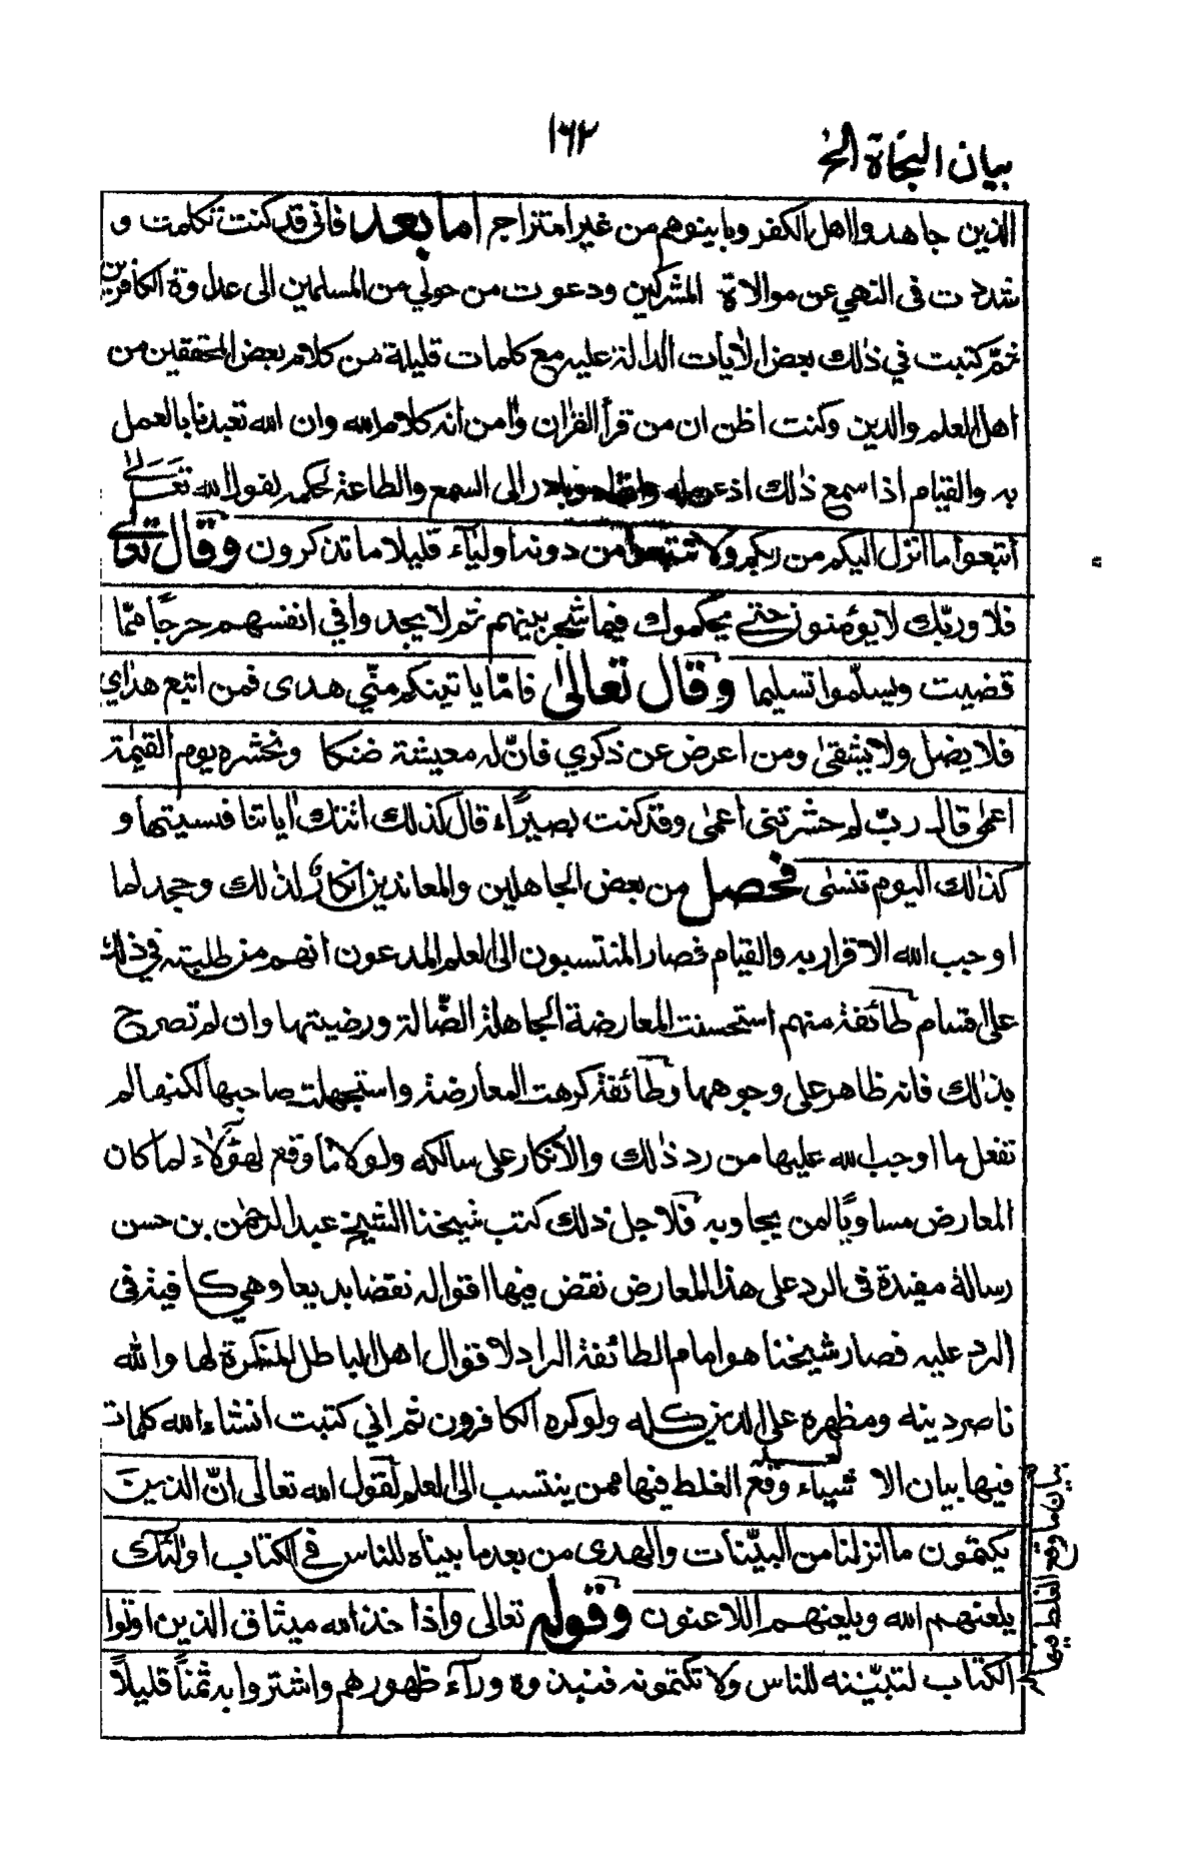 ١٦٢
بيان النجاة الخ
الذين جاهدوا اهل الكفر وباينوهم من غير امتزاج اما بعد فاني قد كنت تكلمت و
شددت في النهي عن موالاة المشركين ودعوت من حولي من المسلمين الى عداوة الكافرين
ثم كتبت في ذلك بعض الأيات الدالة عليه مع كلمات قليلة من كلام بعض المحققين من
اهل العلم والدين وكنت اظن ان من قرأ القرأن وأمن انه كلام الله وان الله تعبدنا بالعمل
به والقيام اذا سمع ذلك اذعن له وبادر الى السمع والطاعة لحكمه لقول الله تعالى
أتبعوا ما انزل اليكم من ربكم ولا تتبعوا من دونه أولياء قليلا ما تذكرون وقال تعالى
فلا وربّك لا يؤمنون حتى يحكموك فيما شجر بينهم ثم لا يجدوا في انفسهم حرجًا ممّا
قضيت ويسلّموا تسليما وقال تعالى فامّا ياتينكم منّي هدى فمن اتبع هداي
فلا يضل ولا يشقى ومن اعرض عن ذكري فانّ له معيشة ضنكا ونحشره يوم القيمة
اعمى قال ربّ لم حشرتنى أعمى وقد كنت بصيراً قال كذلك اتتك أياتنا فنسيتها و
كذلك اليوم تنسى فحصل من بعض الجاهلين والمعاندين انكارٌ لذلك وجحد لما
اوجب الله الاقرار به والقيام فصار المنتسبون الى العلم المدعون انهم من طلبته في ذلك
على اقسام طائفة منهم استحسنت المعارضة الجاهلة الضّالة ورضيتها وان لم تصرح
بذلك فانه ظاهر على وجوهها وطائفة كرهت المعارضة واستجهلت صاحبها لكنها لم
تفعل ما اوجب الله عليها من رد ذلك والانكار على سالكه ولولا ما وقع لهؤلاء لما كان
المعارض مساويًا لمن يجاوبه فلاجل ذلك كتب شيخنا الشيخ عبد الرحمن بن حسن
رسالة مفيدة في الرد على هذا المعارض نقض فيها اقواله نقضا بديعا وهي كافية في
الرد عليه فصار شيخنا هو امام الطائفة الراد لاقوال اهل الباطل المنكرة لها والله
ناصر دينه ومظهره على الدين كله ولو كره الكافرون ثم اني كتبت انشاء الله كلمات
فيها بيان الاشياء وقع الغلط فيها ممن ينتسب الى العلم لقول الله تعالى انّ الذين
يكتمون ما انزلنا من البيّنات والهدى من بعد ما بيناه للناس في الكتاب اولئك
يلعنهم الله ويلعنهم اللاعنون وقوله تعالى وأذا خذ الله ميثاق الذين اوتوا
الكتاب لتبيّننه للناس ولا تكتمونه فنبذوه ورآء ظهورهم واشتروا به ثمنًا قليلاً
بيان ما وقع الغلط فيها